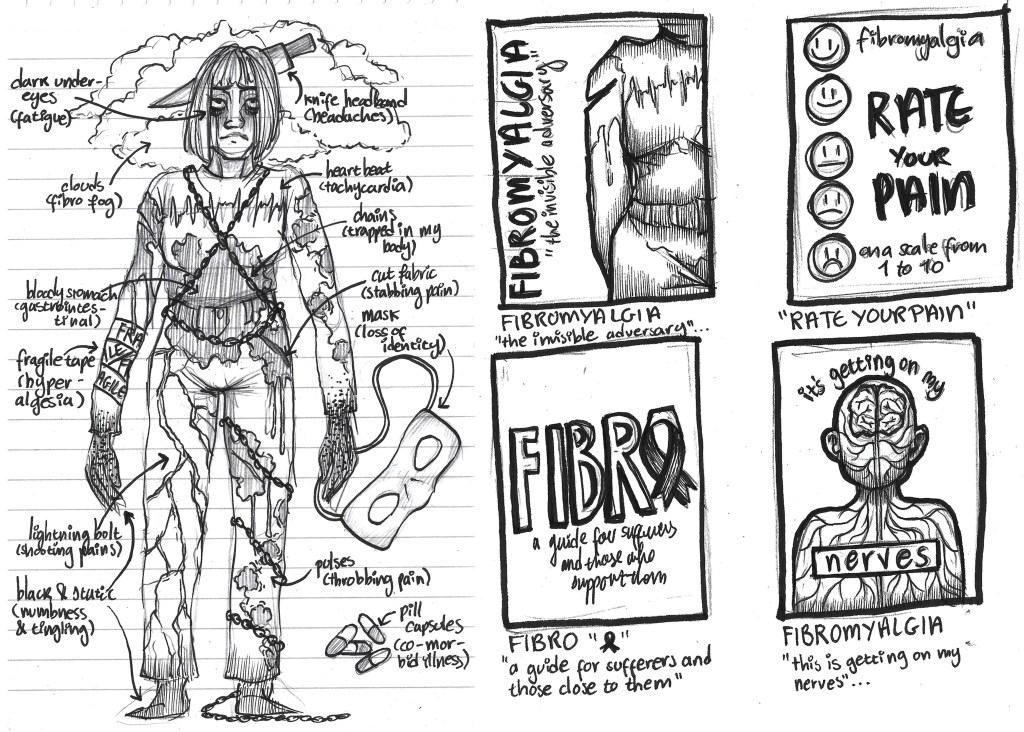 dark under-
eyes
(fatigue)
knife headband
(headaches)
clouds
(fibro fog)
heart beat
(tachycardia)
chains
(trapped in my
body)
bloody stomach
(gastrointes-
tinal)
cut fabric
(stabbing pain)
mask
(loss of
identity)
fragile tape
(hyper-
algesia)
FRA
AGILE
lightning bolt
(shooting pains)
black & static
(numbness
& tingling)
pulses
(throbbing pain)
pill
capsules
(co-mor-
bid illness)
FIBROMYALGIA
"the invisible adversary"
FIBROMYALGIA
"the invisible adversary"...
fibromyalgia
RATE
YOUR
PAIN
on a scale from
1 to 10
"RATE YOUR PAIN"
FIBR
a guide for sufferers
and those who
support them
FIBRO " "
"a guide for sufferers and
those close to them"
it's getting on my
nerves
FIBROMYALGIA
"this is getting on my
nerves"...